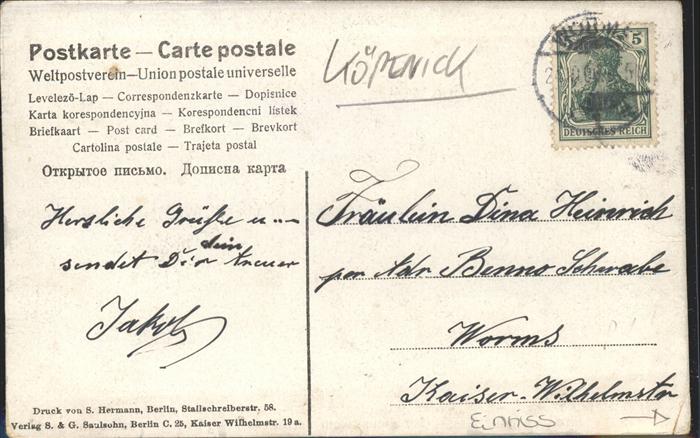 Postkarte — Carte postale
Weltpostverein—Union postale universelle
Levelező-Lap — Correspondenzkarte — Dopisnice
Karta korespondencyjna — Korespondencni lístek
Briefkaart — Post card — Brefkort — Brevkort
Cartolina postale — Trajeta postal
Открытое письмо. Дописна карта
KÖPENICK
5
DEUTSCHES REICH
Herzliche Grüße u
sendet Dir dein treuer
Jakob
Fräulein Dina Heinrich
per Adr Benno Schwabe
Worms
Kaiser-Wilhelmstr
Einriss
Druck von S. Hermann, Berlin, Stallschreiberstr. 58.
Verlag S. & G. Saulsohn, Berlin C. 25, Kaiser Wilhelmstr. 19a.